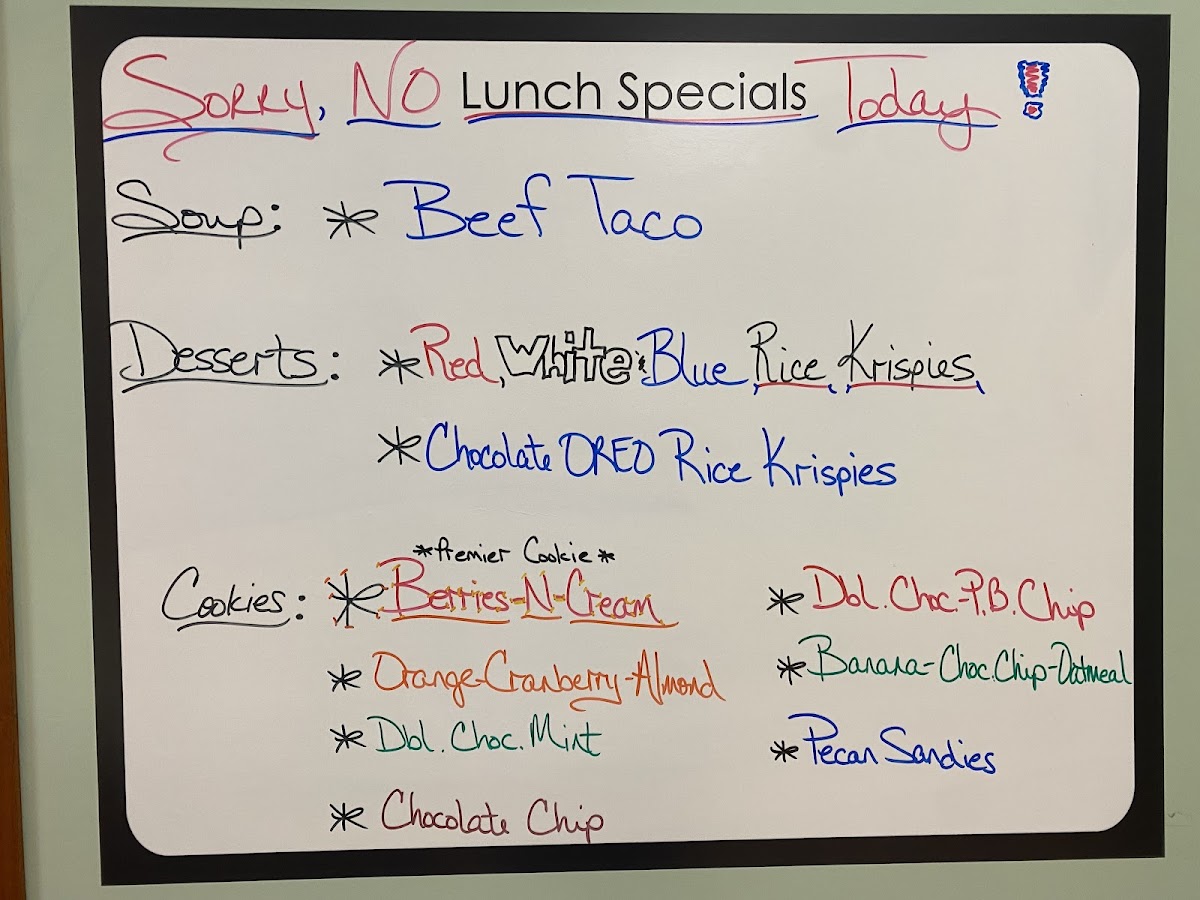 Sorry, NO Lunch Specials Today!
Soup: * Beef Taco
Desserts: * Red, White & Blue Rice Krispies
* Chocolate OREO Rice Krispies
*Premier Cookie*
Cookies: * Berries-N-Cream
* Orange-Cranberry-Almond
* Dbl. Choc. Mint
* Chocolate Chip
* Dbl. Choc.-P.B. Chip
* Banana-Choc. Chip-Oatmeal
* Pecan Sandies